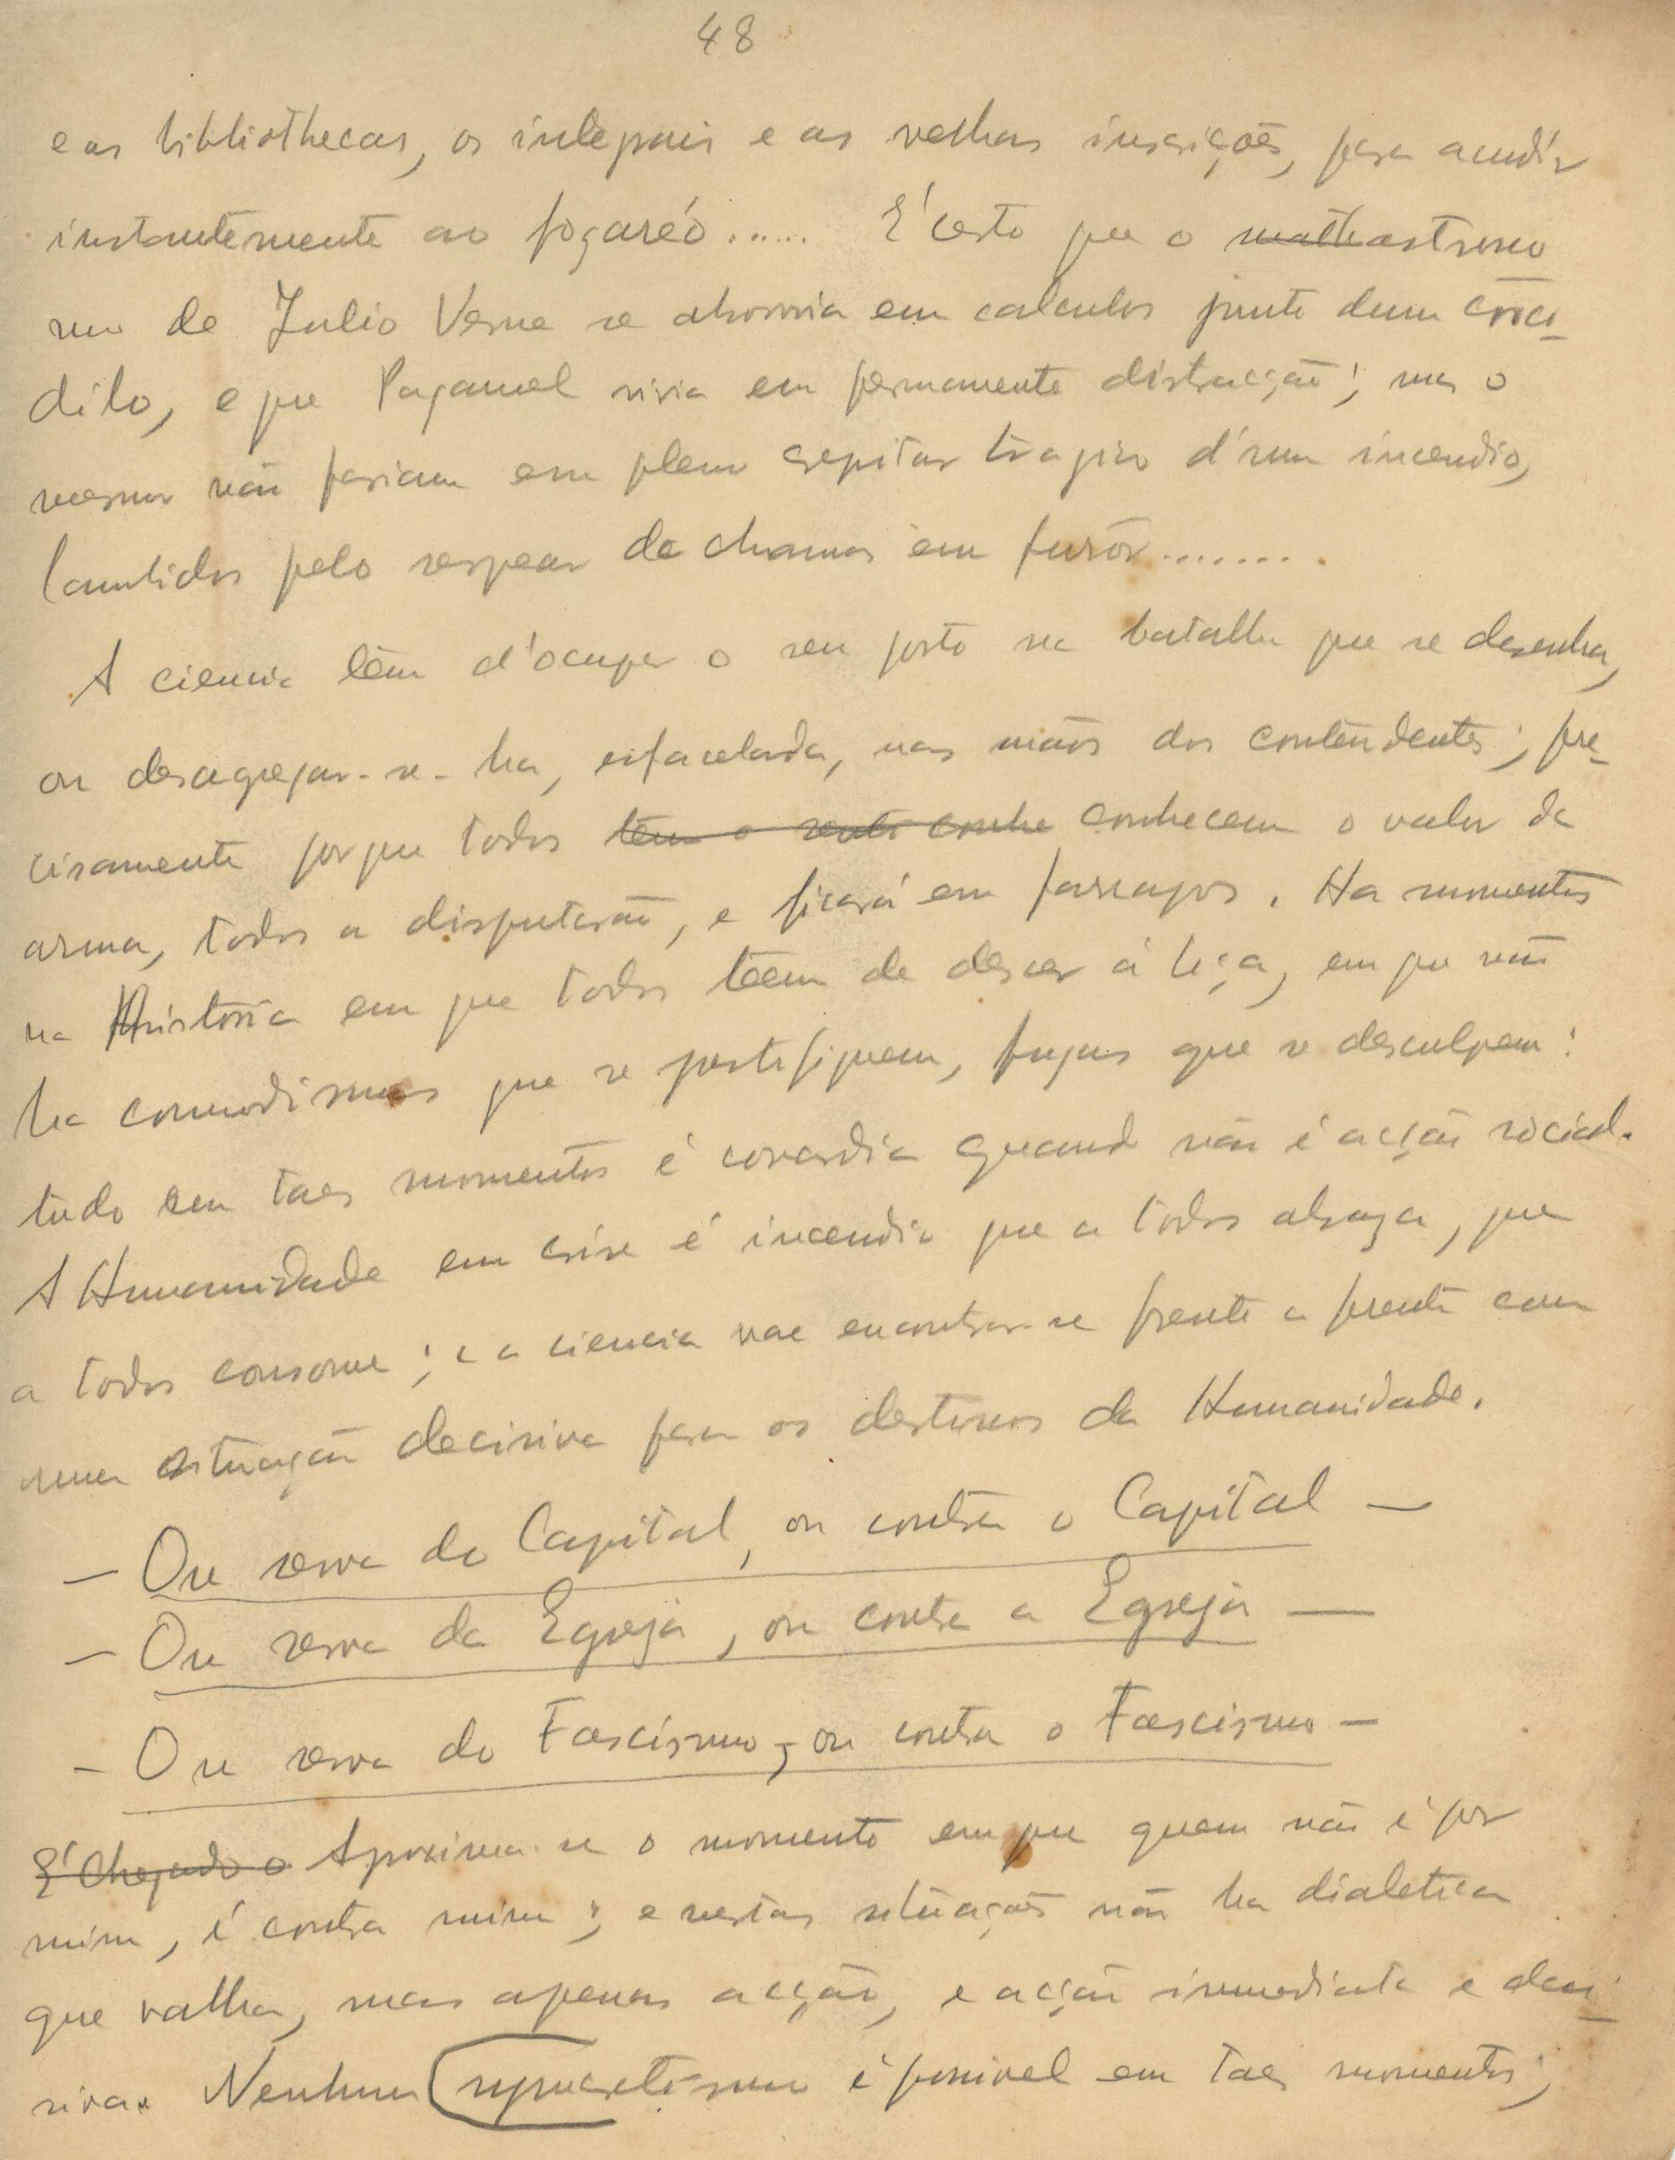 48
e as bibliothecas, os integrais e as velhas inscrições, para acudir
instantemente ao fogaréo...... E' certo que o math astrono
mo de Julio Verne se absorvia em calculos junto dum croco-
dilo, e que Paganel vivia em permanente distracção; mas o
mesmo não fariam em pleno crepitar tragico d'um incendio,
lambidos pelo serpear de chamas em furôr........
A ciencia têm d'ocupar o seu posto na batalha que se desenha,
ou desagregar-se-ha, esfacelada, nas mãos dos contendentes; pre-
cisamente porque todos têm o conhe conhecem o valor da
arma, todos a disputarão, e ficará em farrapos. Ha momentos
na História em que todos têem de descer á liça, em que não
ha commodismos que se justifiquem, fugas que se desculpem:
tudo em taes momentos é covardia quando não é acção social.
A Humanidade em crise é incendio que a todos abraza, que
a todos consome; e a ciencia vae encontrar-se frente a frente com
uma situação decisiva para os destinos da Humanidade.
— Ou serva do Capital, ou contra o Capital —
— Ou serva da Egreja, ou contra a Egreja —
— Ou serva do Fascismo, ou contra o Fascismo —
E' Chegado o Aproxima-se o momento em que quem não é por
mim, é contra mim; e nestas situações não ha dialetica
que valha, mas apenas acção, e acção immediata e deci-
siva. Nenhum é possivel em taes momentos;